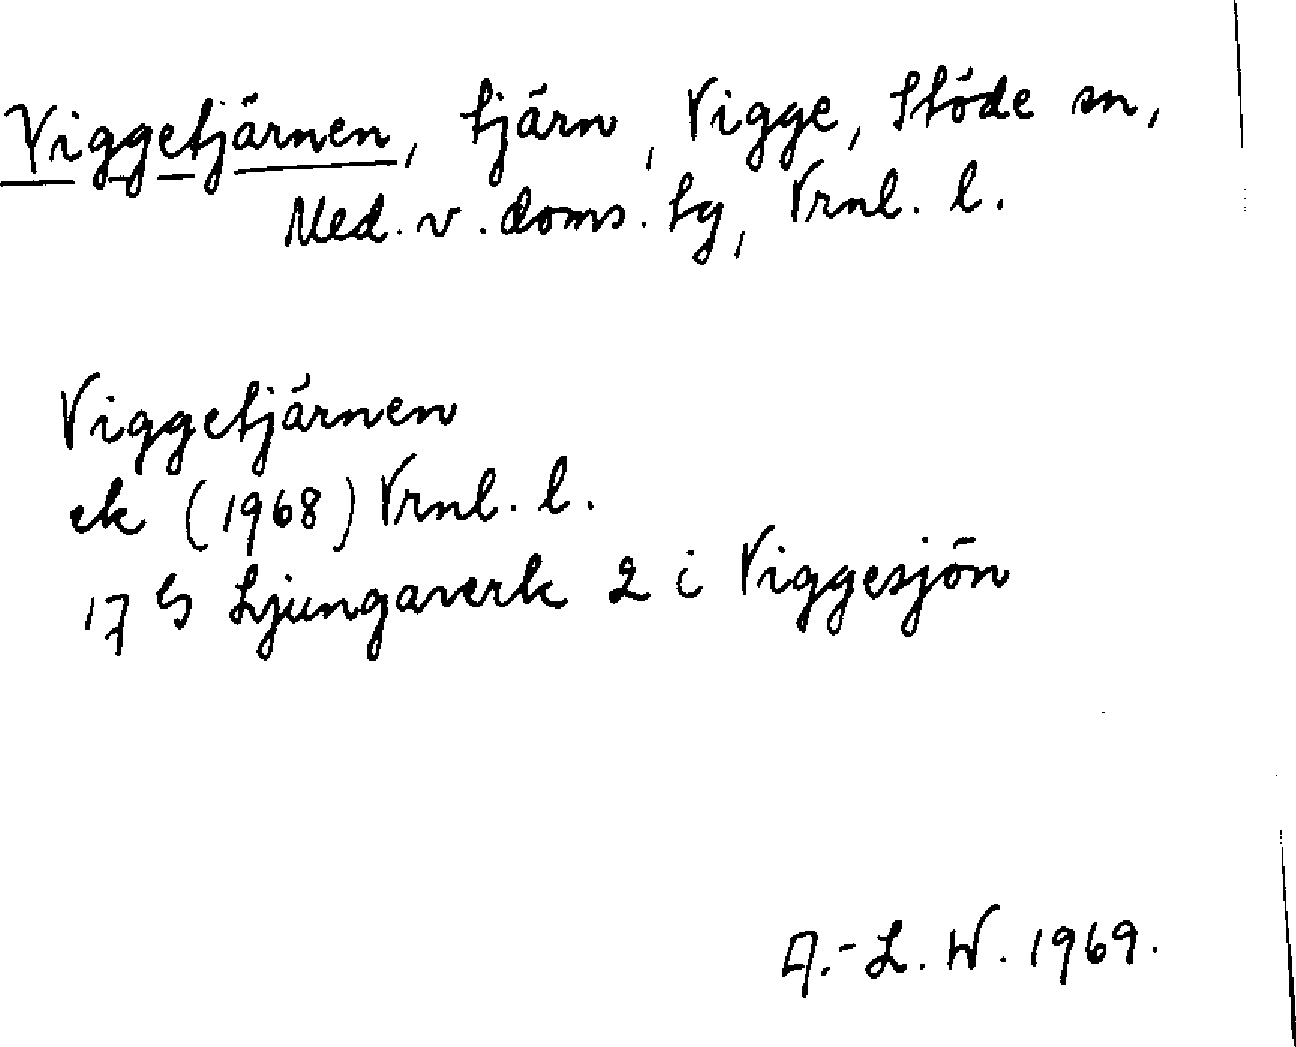 Viggetjärnen, tjärn, Vigge, Stöde sn,
Med. v. doms. tg, Vrnl. l.
Viggetjärnen
ek (1968) Vrnl. l.
17 G Ljungaverk 2 i Viggesjön
A.-L. W. 1969.